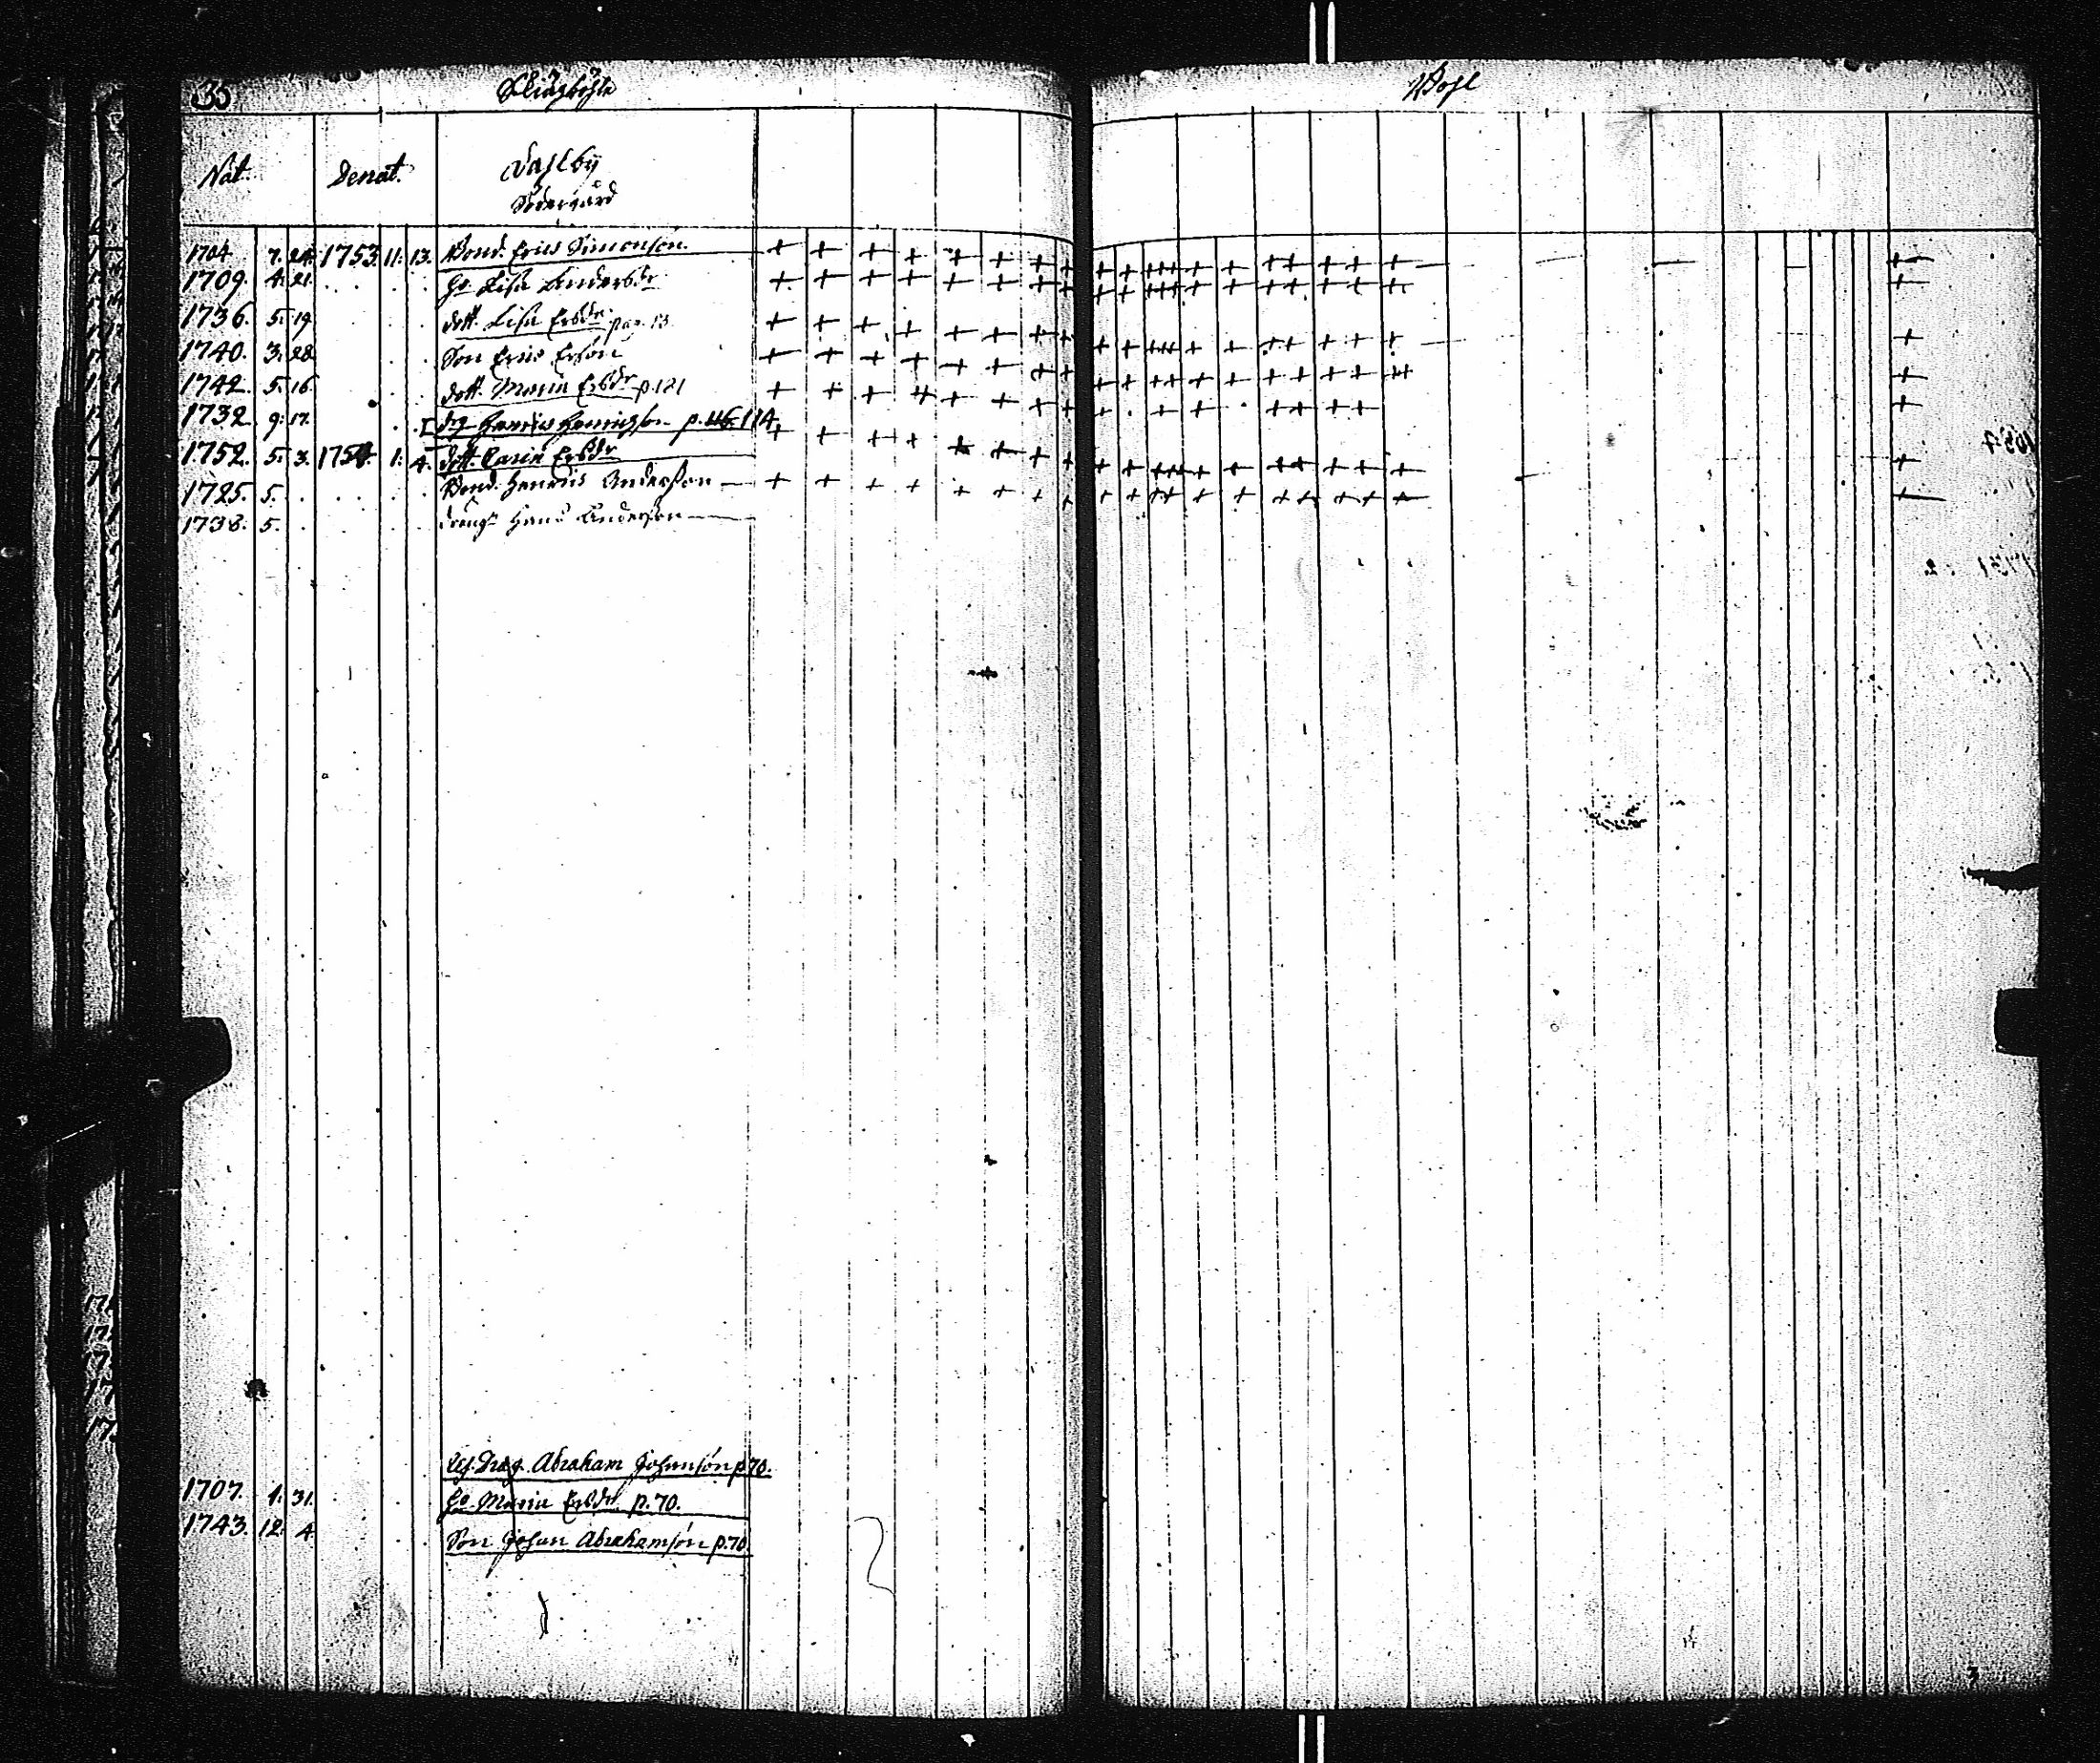 35
Nat. Denat. Dahlby
Södergård
1704 7. 24. 1753 11. 13. Bond. Eric Simonsson.
1709. 4. 21. Ho Lisa Andersdr
1736. 5. 19. dott. Lisa Ersdr. pag. 13.
1740. 3. 28. Son Eric Ersson
1742. 5. 16. dott. Maria Ersdr p. 121
1732. 9. 17. dg Henrich Henrichsson p. 114.
1752. 5. 3. 1754. 1. 4. dott. Carin Ersdr
1725. 5. Bond. Henric Andersson
1738. 5. dräng Hans Andersson
Abraham Johansson p. 70.
1707. 1. 31. Ho Maria Ersdr p. 70.
1743. 12. 4. Son Johan Abrahamsson p. 70.